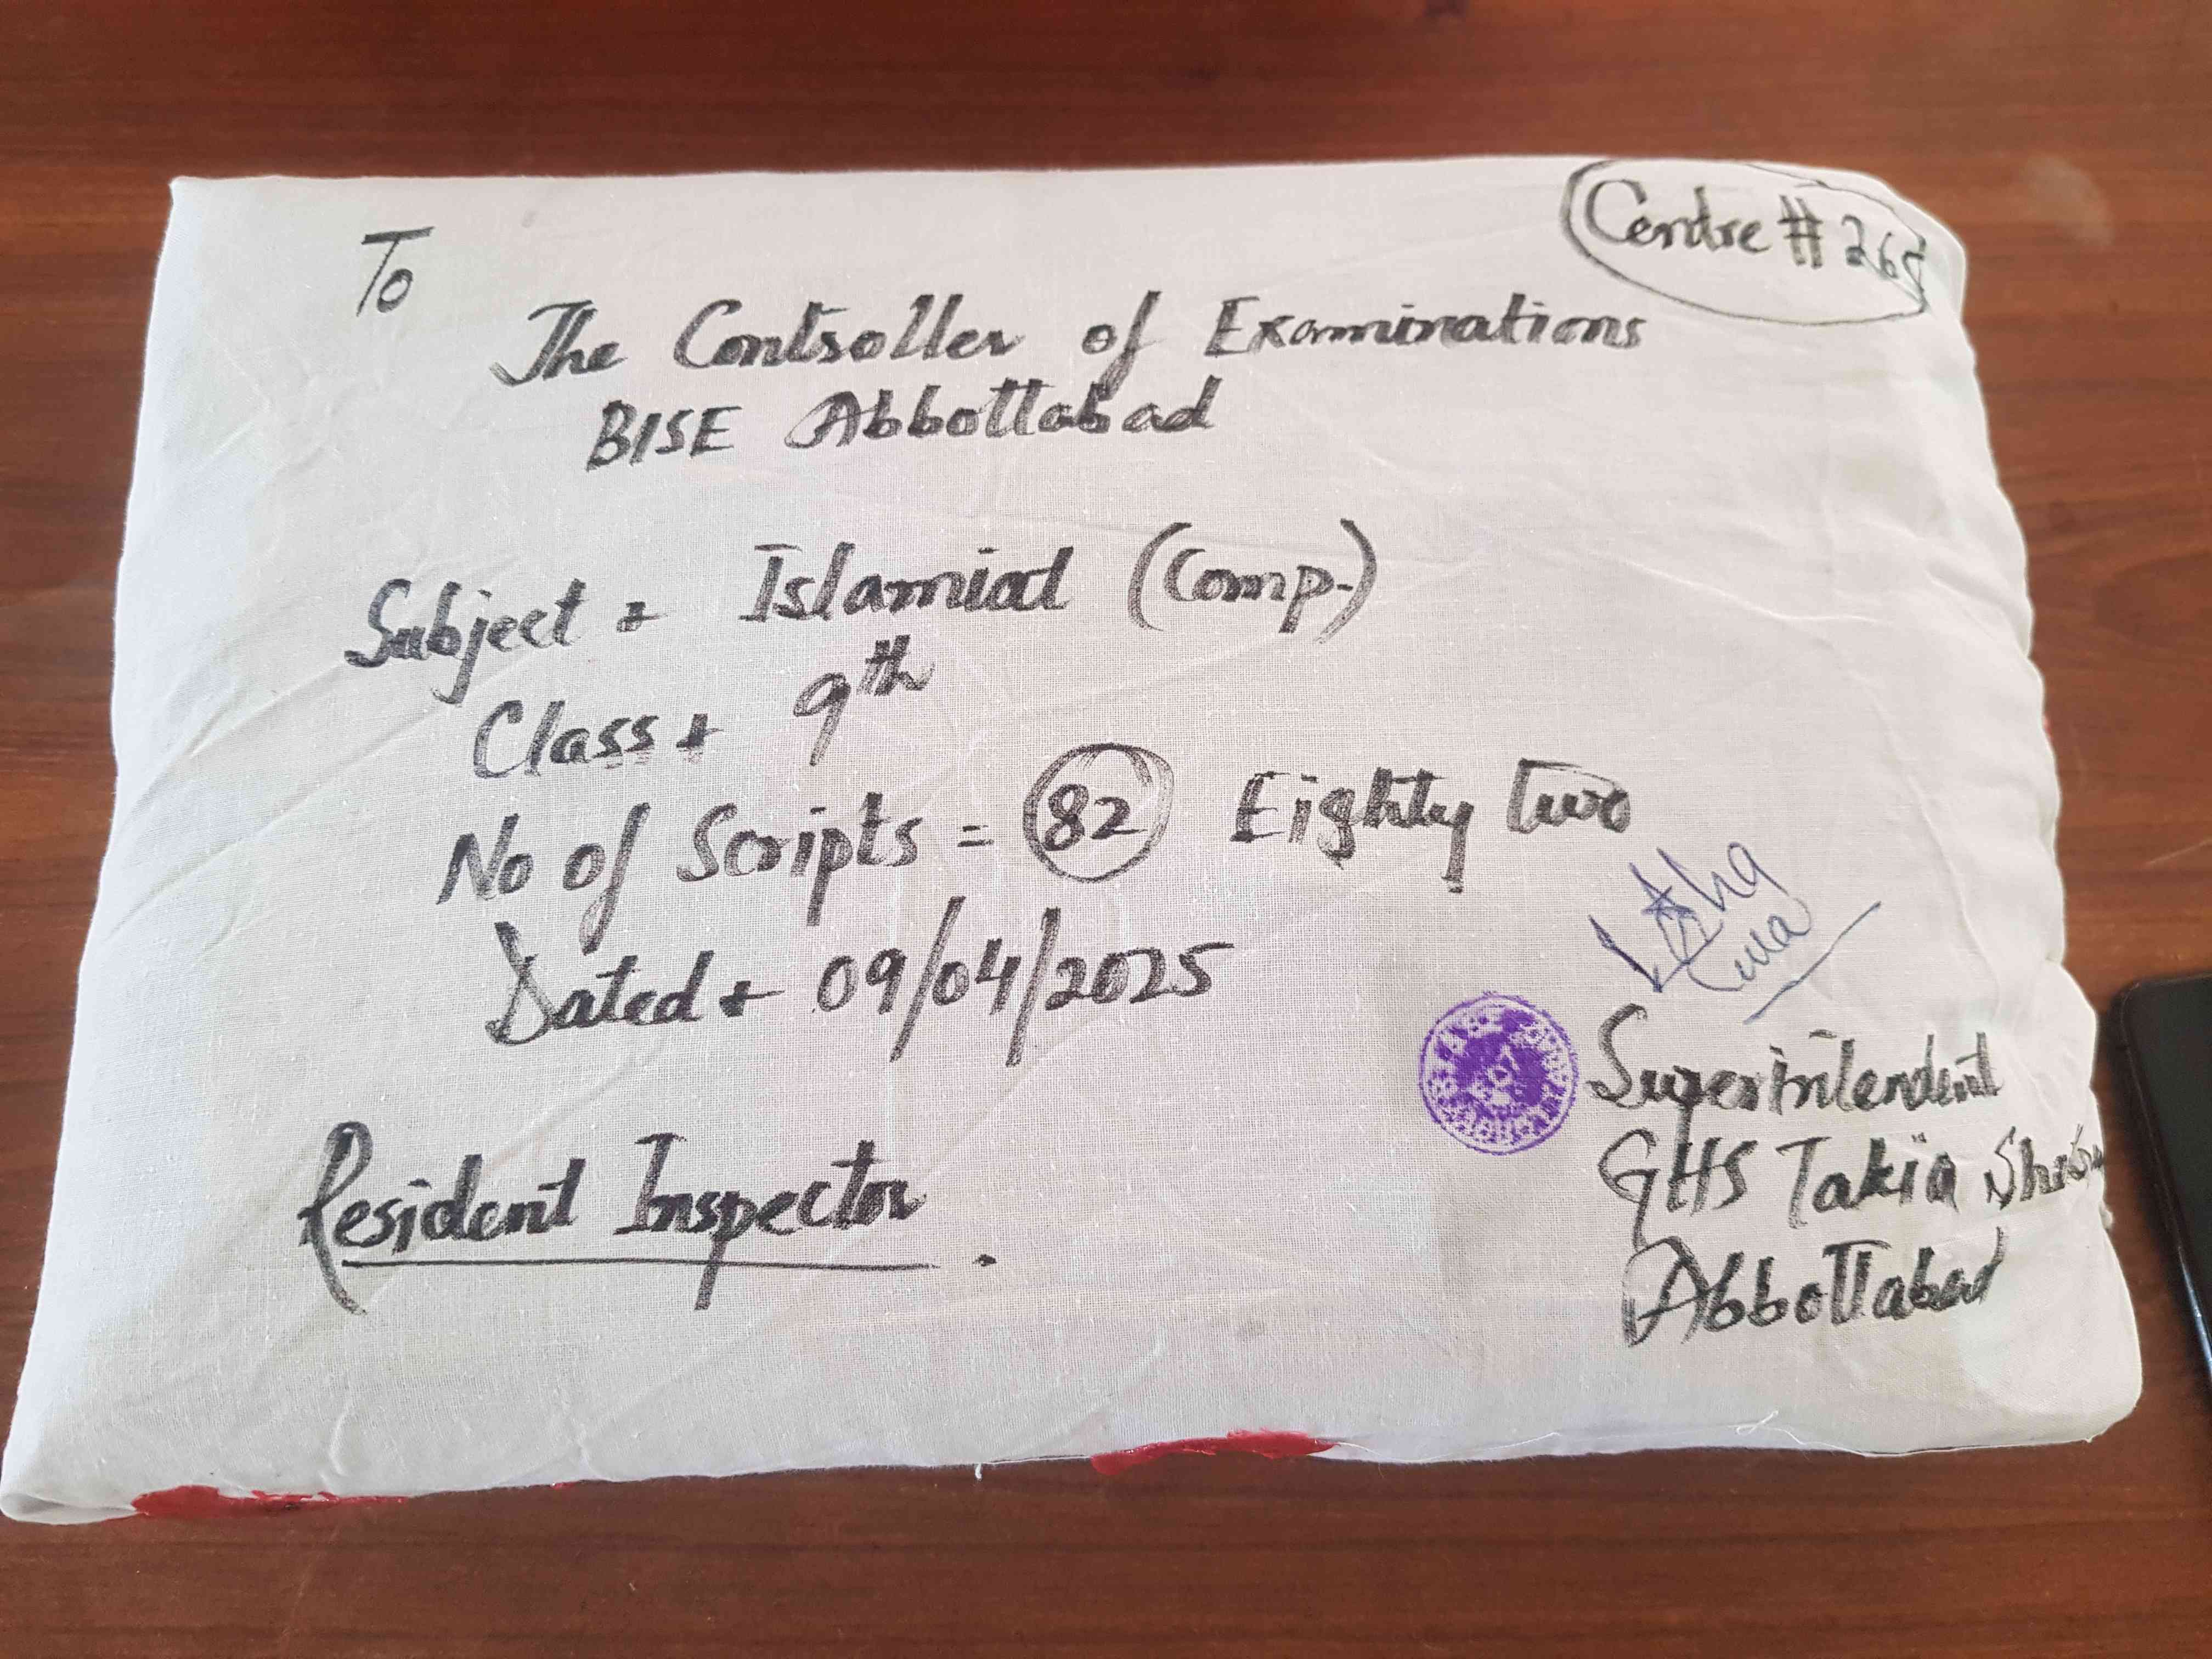 Centre # 265
To
The Controller of Examinations
BISE Abbottabad
Subject :- Islamiat (Comp.)
Class :- 9th
No of Scripts = 82 Eighty Two
Dated :- 09/04/2025
Superintendent
GHS Takia
Abbottabad
Resident Inspector.